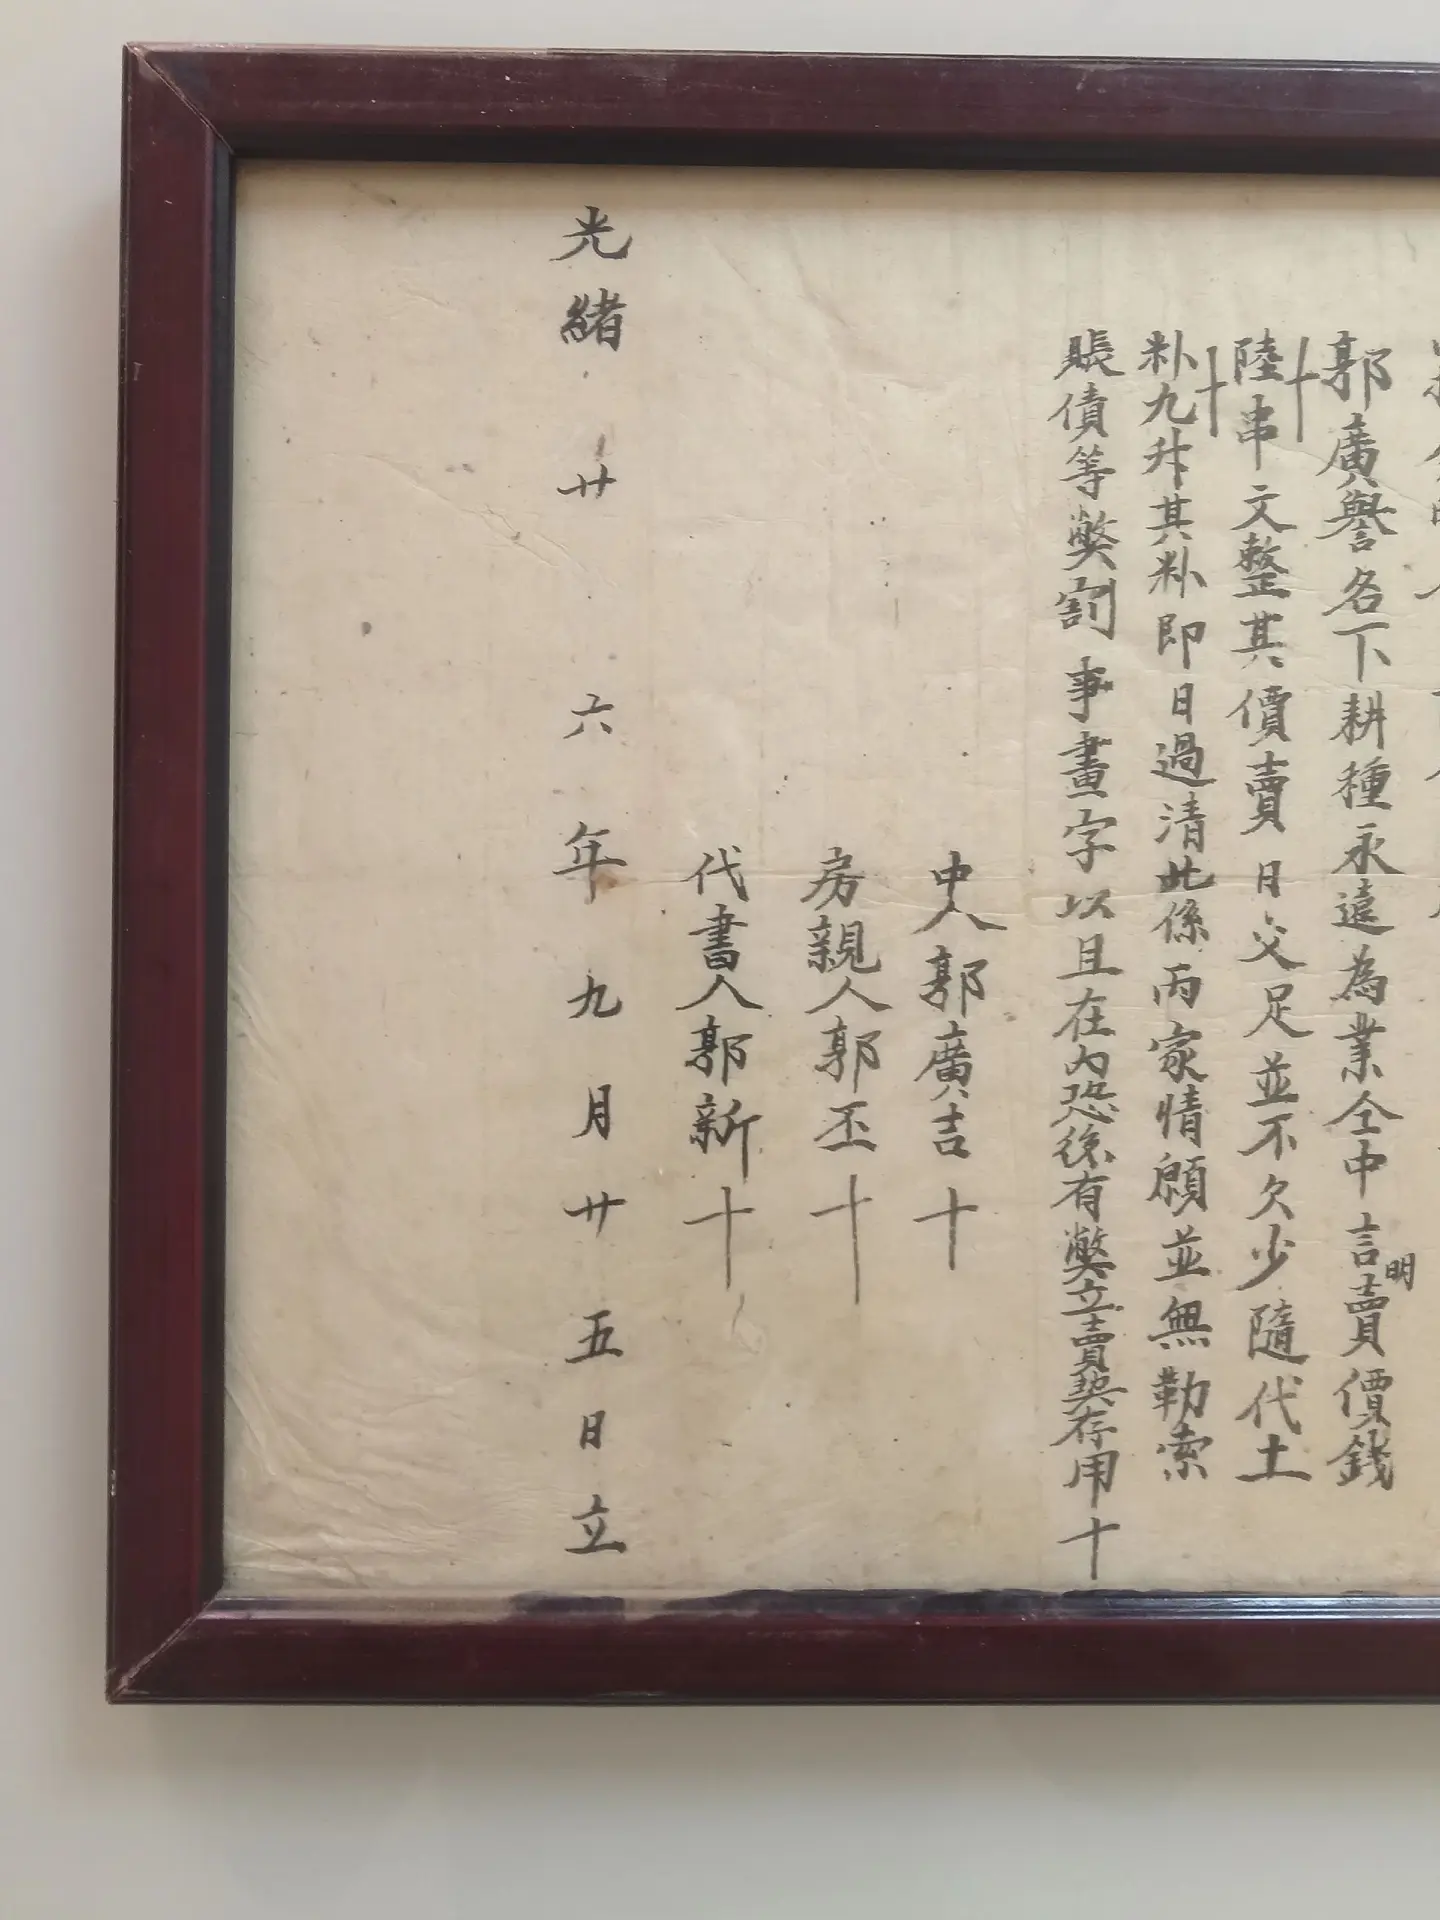 郭廣譽名下耕種永遠為業仝中言明賣價錢
陸串文整其價賣日交足並不欠少隨代土
籵九升其籵即日過清此係丙家情願並無勒索
賬債等獘割事畫字以且在內恐後有獘立賣契存用十
中人郭廣吉十
房親人郭丕十
代書人郭新十
光緒廿六年九月廿五日立